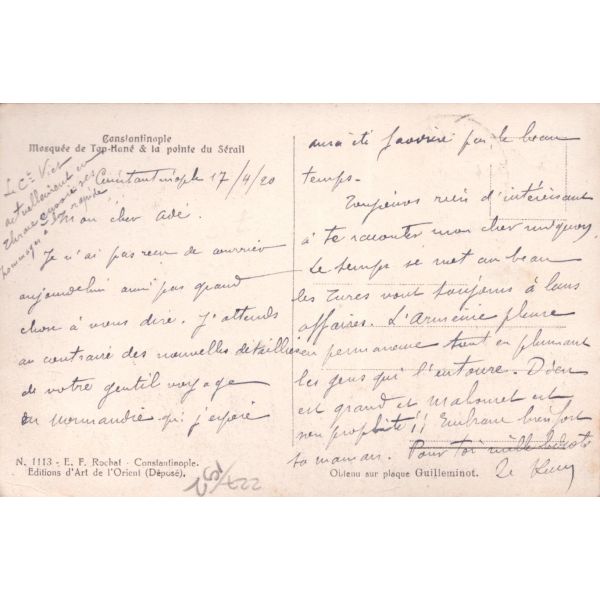 Constantinople
Mosquée de Top-Hané & la pointe du Sérail
Le Ct Viet
actuellement en
Thrace envoie ses
hommages à
Constantinople 17/4/20
Mon cher Adé.
Je n'ai pas reçu de courrier
aujourd'hui aussi pas grand
chose à vous dire. J'attends
au contraire des nouvelles détaillées
de votre gentil voyage
en Normandie qui j'espère
aura été favorisé par le beau
temps.
Toujours rien d'intéressant
à te raconter mon cher
Le temps se met au beau
les Turcs vont toujours à leurs
affaires. L'Arménie pleure
en permanence tout en plumant
les gens qui l'entoure. Dieu
est grand et Mahomet est
son prophète !! Embrasse bien fort
ta maman. Pour toi mille
N. 1113 - E. F. Rochat - Constantinople.
Editions d'Art de l'Orient (Déposé).
Obtenu sur plaque Guilleminot.